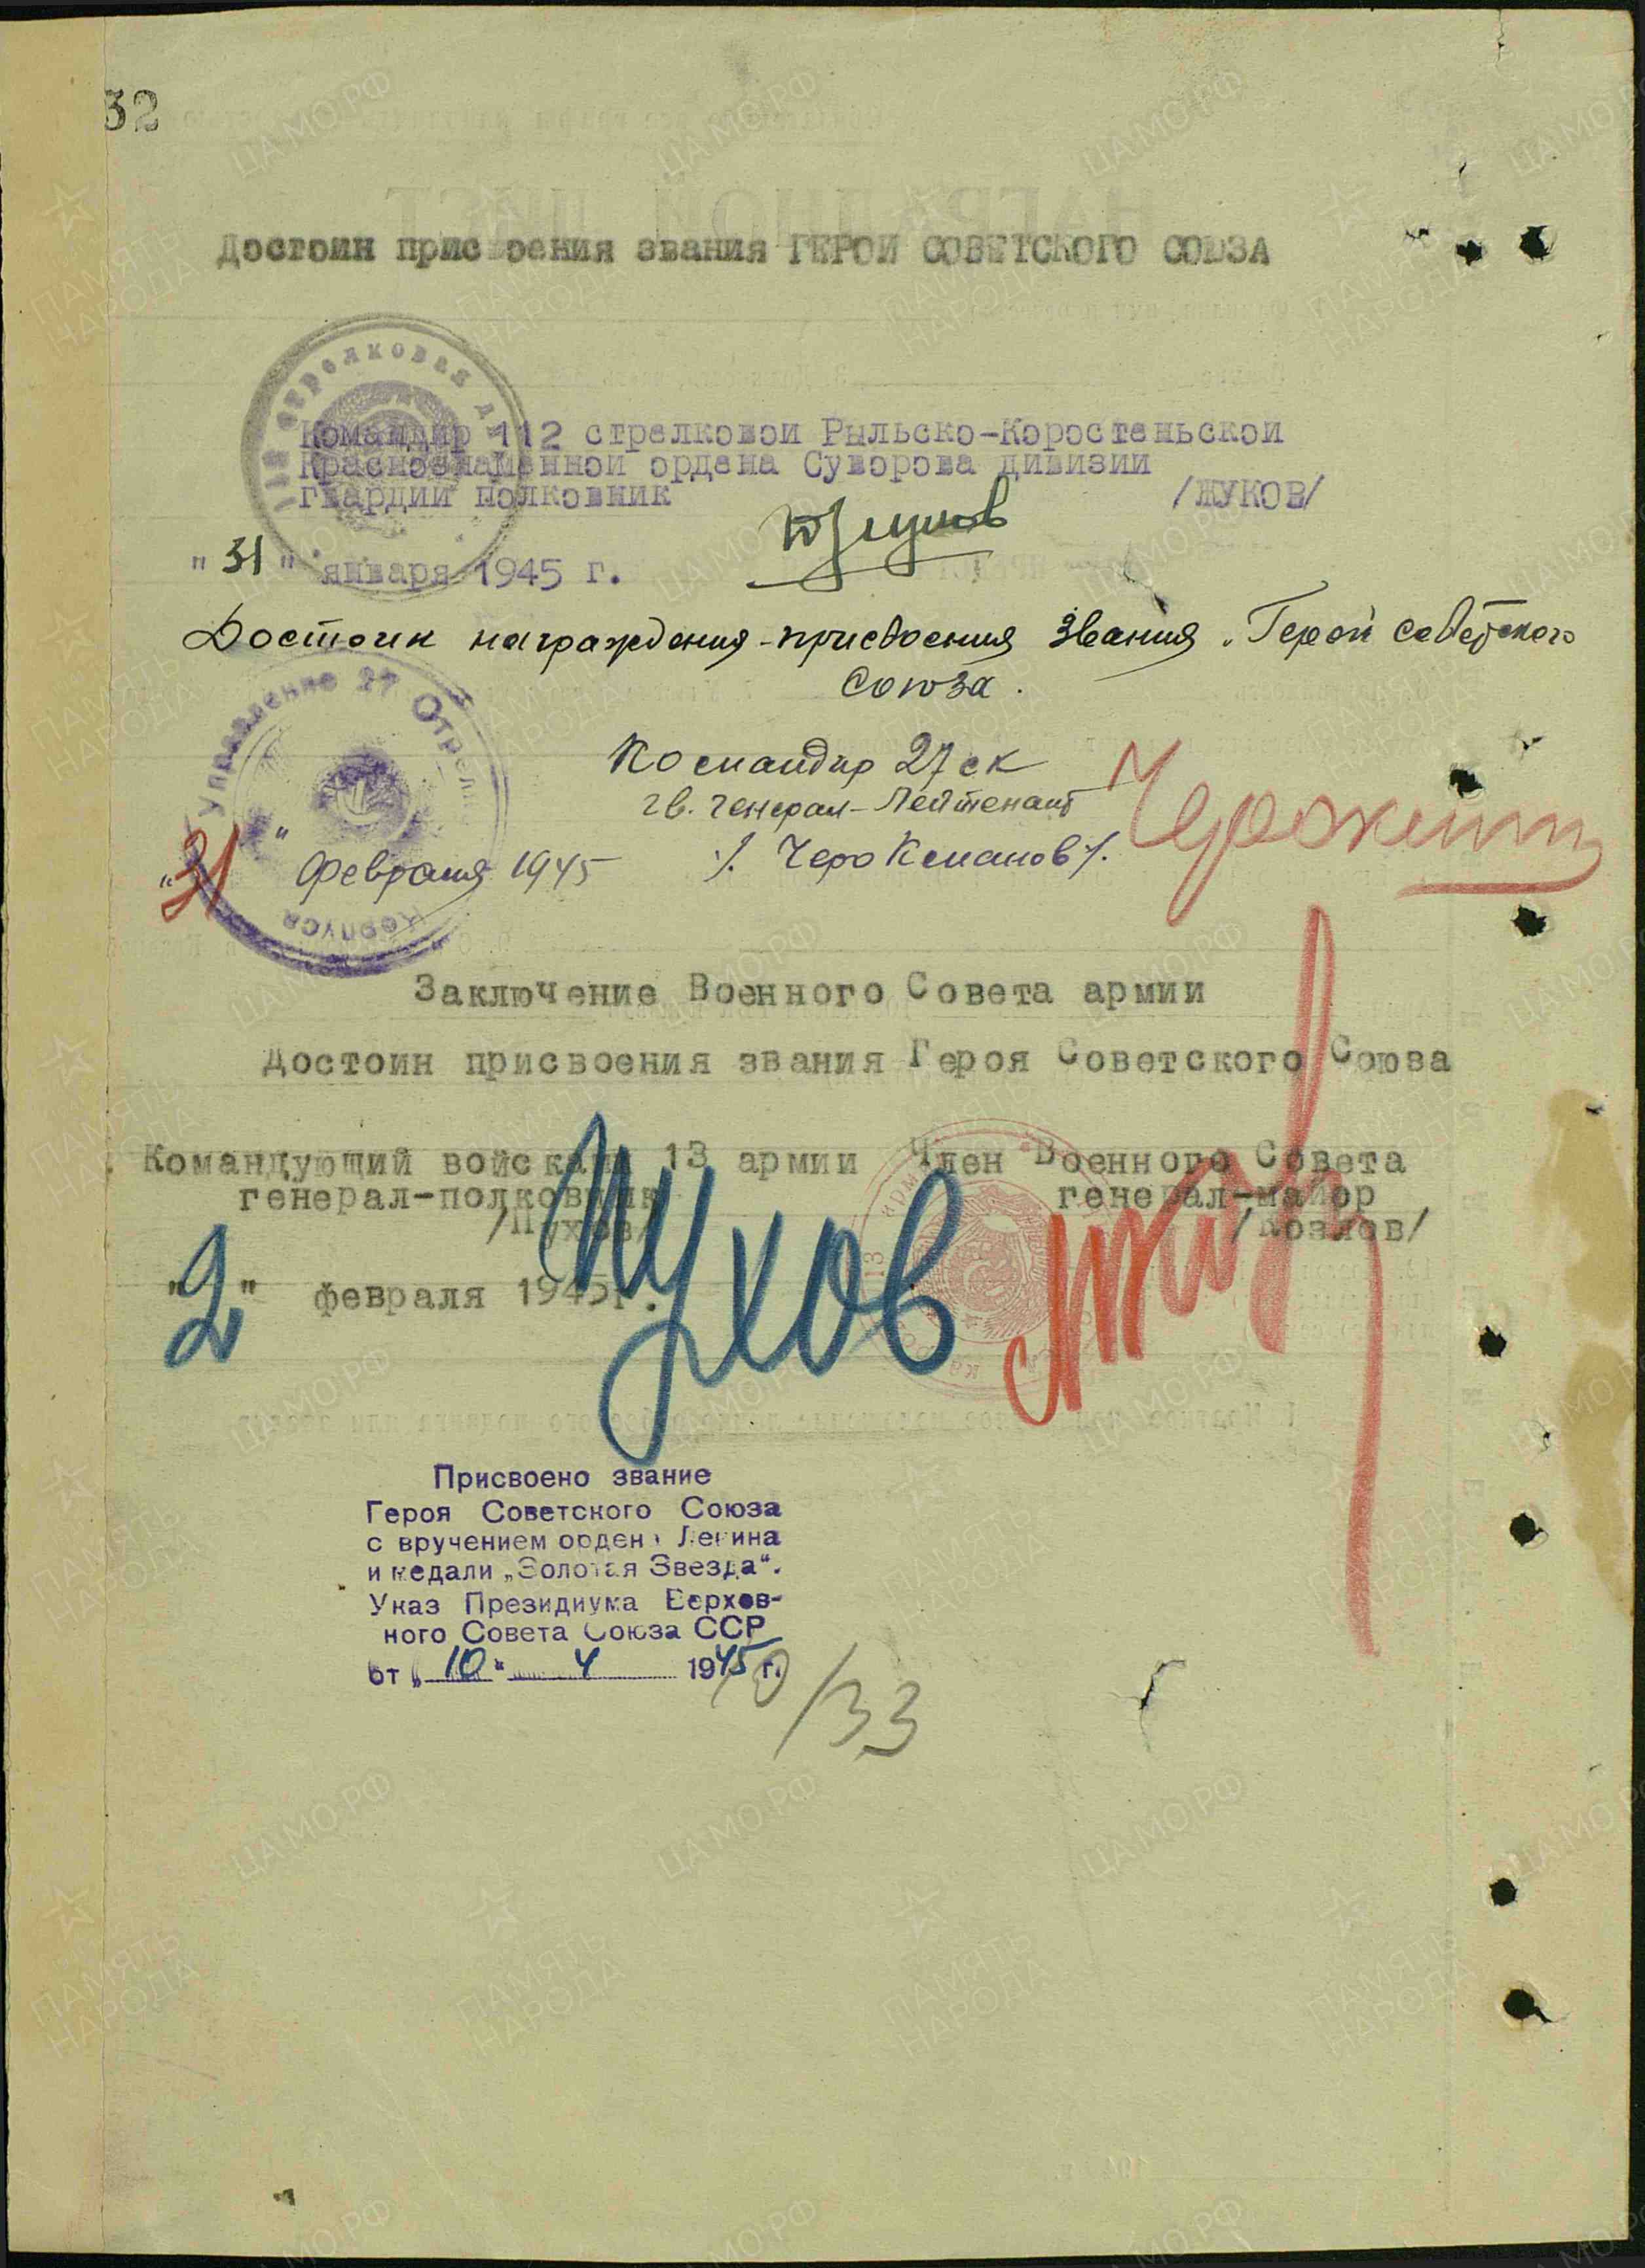 32
Достоин присвоения звания ГЕРОЙ СОВЕТСКОГО СОЮЗА
Командир 112 стрелковой Рыльско-Коростеньской
Краснознаменной ордена Суворова дивизии
гвардии полковник /ЖУКОВ/
"31" января 1945 г.
Достоин награждения-присвоения звания „Герой советского
Союза.
Управление 27 Стрел
Корпуса
Командир 27 ск
гв. генерал-лейтенант
/. Черокманов /.
" февраля 1945
Заключение Военного Совета армии
Достоин присвоения звания Героя Советского Союза
Командующий войсками 13 армии Член Военного Совета
генерал-полковник генерал-майор
/Пухов/ /Козлов/
Пухов
"2" февраля 1945г.
Присвоено звание
Героя Советского Союза
с вручением ордена Ленина
и медали „Золотая Звезда".
Указ Президиума Верхов-
ного Совета Союза ССР
от „10" 4 1945 г.
/33
ПАМЯТЬ НАРОДА
ЦАМО.РФ